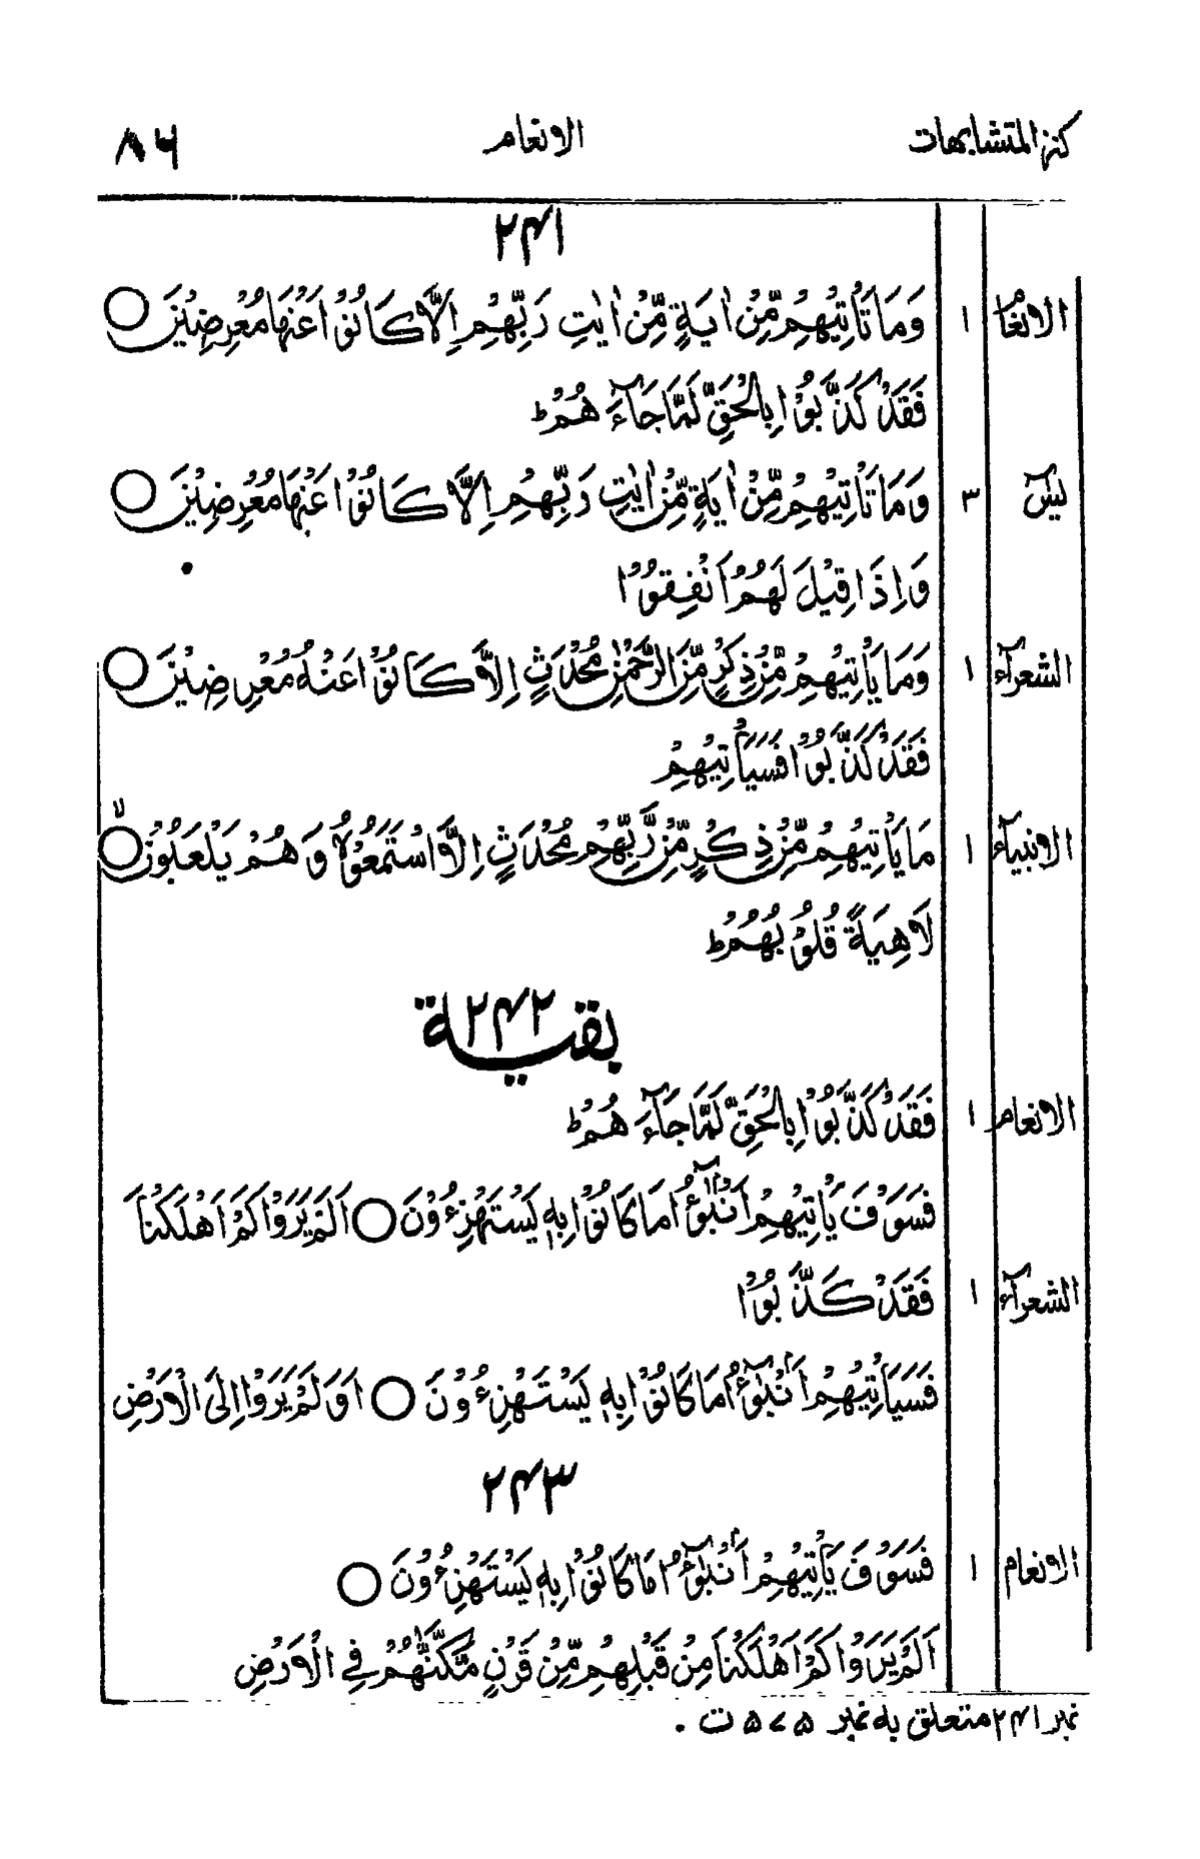 كنز المتشابهات الانعام ۸۶
۲۴۱
الانعام ۱ وَمَا تَأْتِيْهِمْ مِّنْ اٰيَةٍ مِّنْ اٰيٰتِ رَبِّهِمْ اِلَّا كَانُوْا عَنْهَا مُعْرِضِيْنَ ○
فَقَدْ كَذَّبُوْا بِالْحَقِّ لَمَّا جَآءَ هُمْ ؕ
يٰسٓ ۳ وَمَا تَأْتِيْهِمْ مِّنْ اٰيَةٍ مِّنْ اٰيٰتِ رَبِّهِمْ اِلَّا كَانُوْا عَنْهَا مُعْرِضِيْنَ ○
وَاِذَا قِيْلَ لَهُمْ اَنْفِقُوْا
الشعرآء ۱ وَمَا يَأْتِيْهِمْ مِّنْ ذِكْرٍ مِّنَ الرَّحْمٰنِ مُحْدَثٍ اِلَّا كَانُوْا عَنْهُ مُعْرِضِيْنَ ○
فَقَدْ كَذَّبُوْا فَسَيَأْتِيْهِمْ
الانبيآء ۱ مَا يَأْتِيْهِمْ مِّنْ ذِكْرٍ مِّنْ رَّبِّهِمْ مُحْدَثٍ اِلَّا اسْتَمَعُوْهُ وَهُمْ يَلْعَبُوْنَ ○ ۙ
لَاهِيَةً قُلُوْبُهُمْ ؕ
بقية ۲۴۲
الانعام ۱ فَقَدْ كَذَّبُوْا بِالْحَقِّ لَمَّا جَآءَ هُمْ ؕ
فَسَوْفَ يَأْتِيْهِمْ اَنْۢبٰٓؤُا مَا كَانُوْا بِهٖ يَسْتَهْزِءُوْنَ ○ اَلَمْ يَرَوْا كَمْ اَهْلَكْنَا
الشعرآء ۱ فَقَدْ كَذَّبُوْا
فَسَيَأْتِيْهِمْ اَنْۢبٰٓؤُا مَا كَانُوْا بِهٖ يَسْتَهْزِءُوْنَ ○ اَوَلَمْ يَرَوْا اِلَى الْاَرْضِ
۲۴۳
الانعام ۱ فَسَوْفَ يَأْتِيْهِمْ اَنْۢبٰٓؤُا مَا كَانُوْا بِهٖ يَسْتَهْزِءُوْنَ ○
اَلَمْ يَرَوْا كَمْ اَهْلَكْنَا مِنْ قَبْلِهِمْ مِّنْ قَرْنٍ مَّكَّنّٰهُمْ فِى الْاَرْضِ
نمبر ۲۴۱ متعلق به نمبر ۵۷۵ ت .